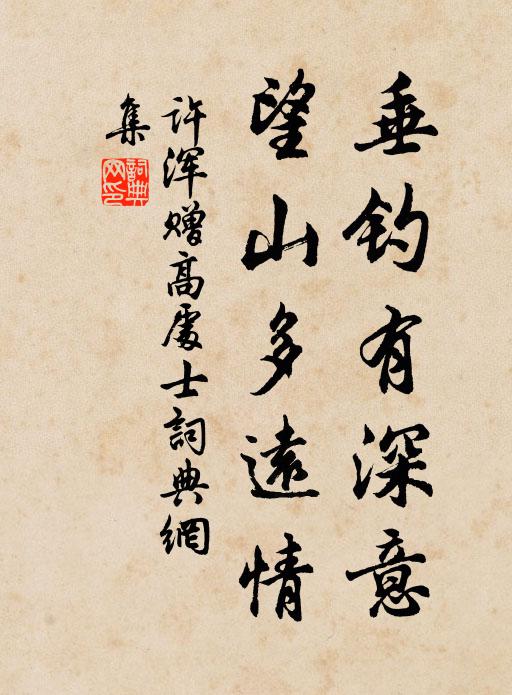 垂钓有深意
望山多遠情
许浑赠高處士詞典網
集
詞典網印